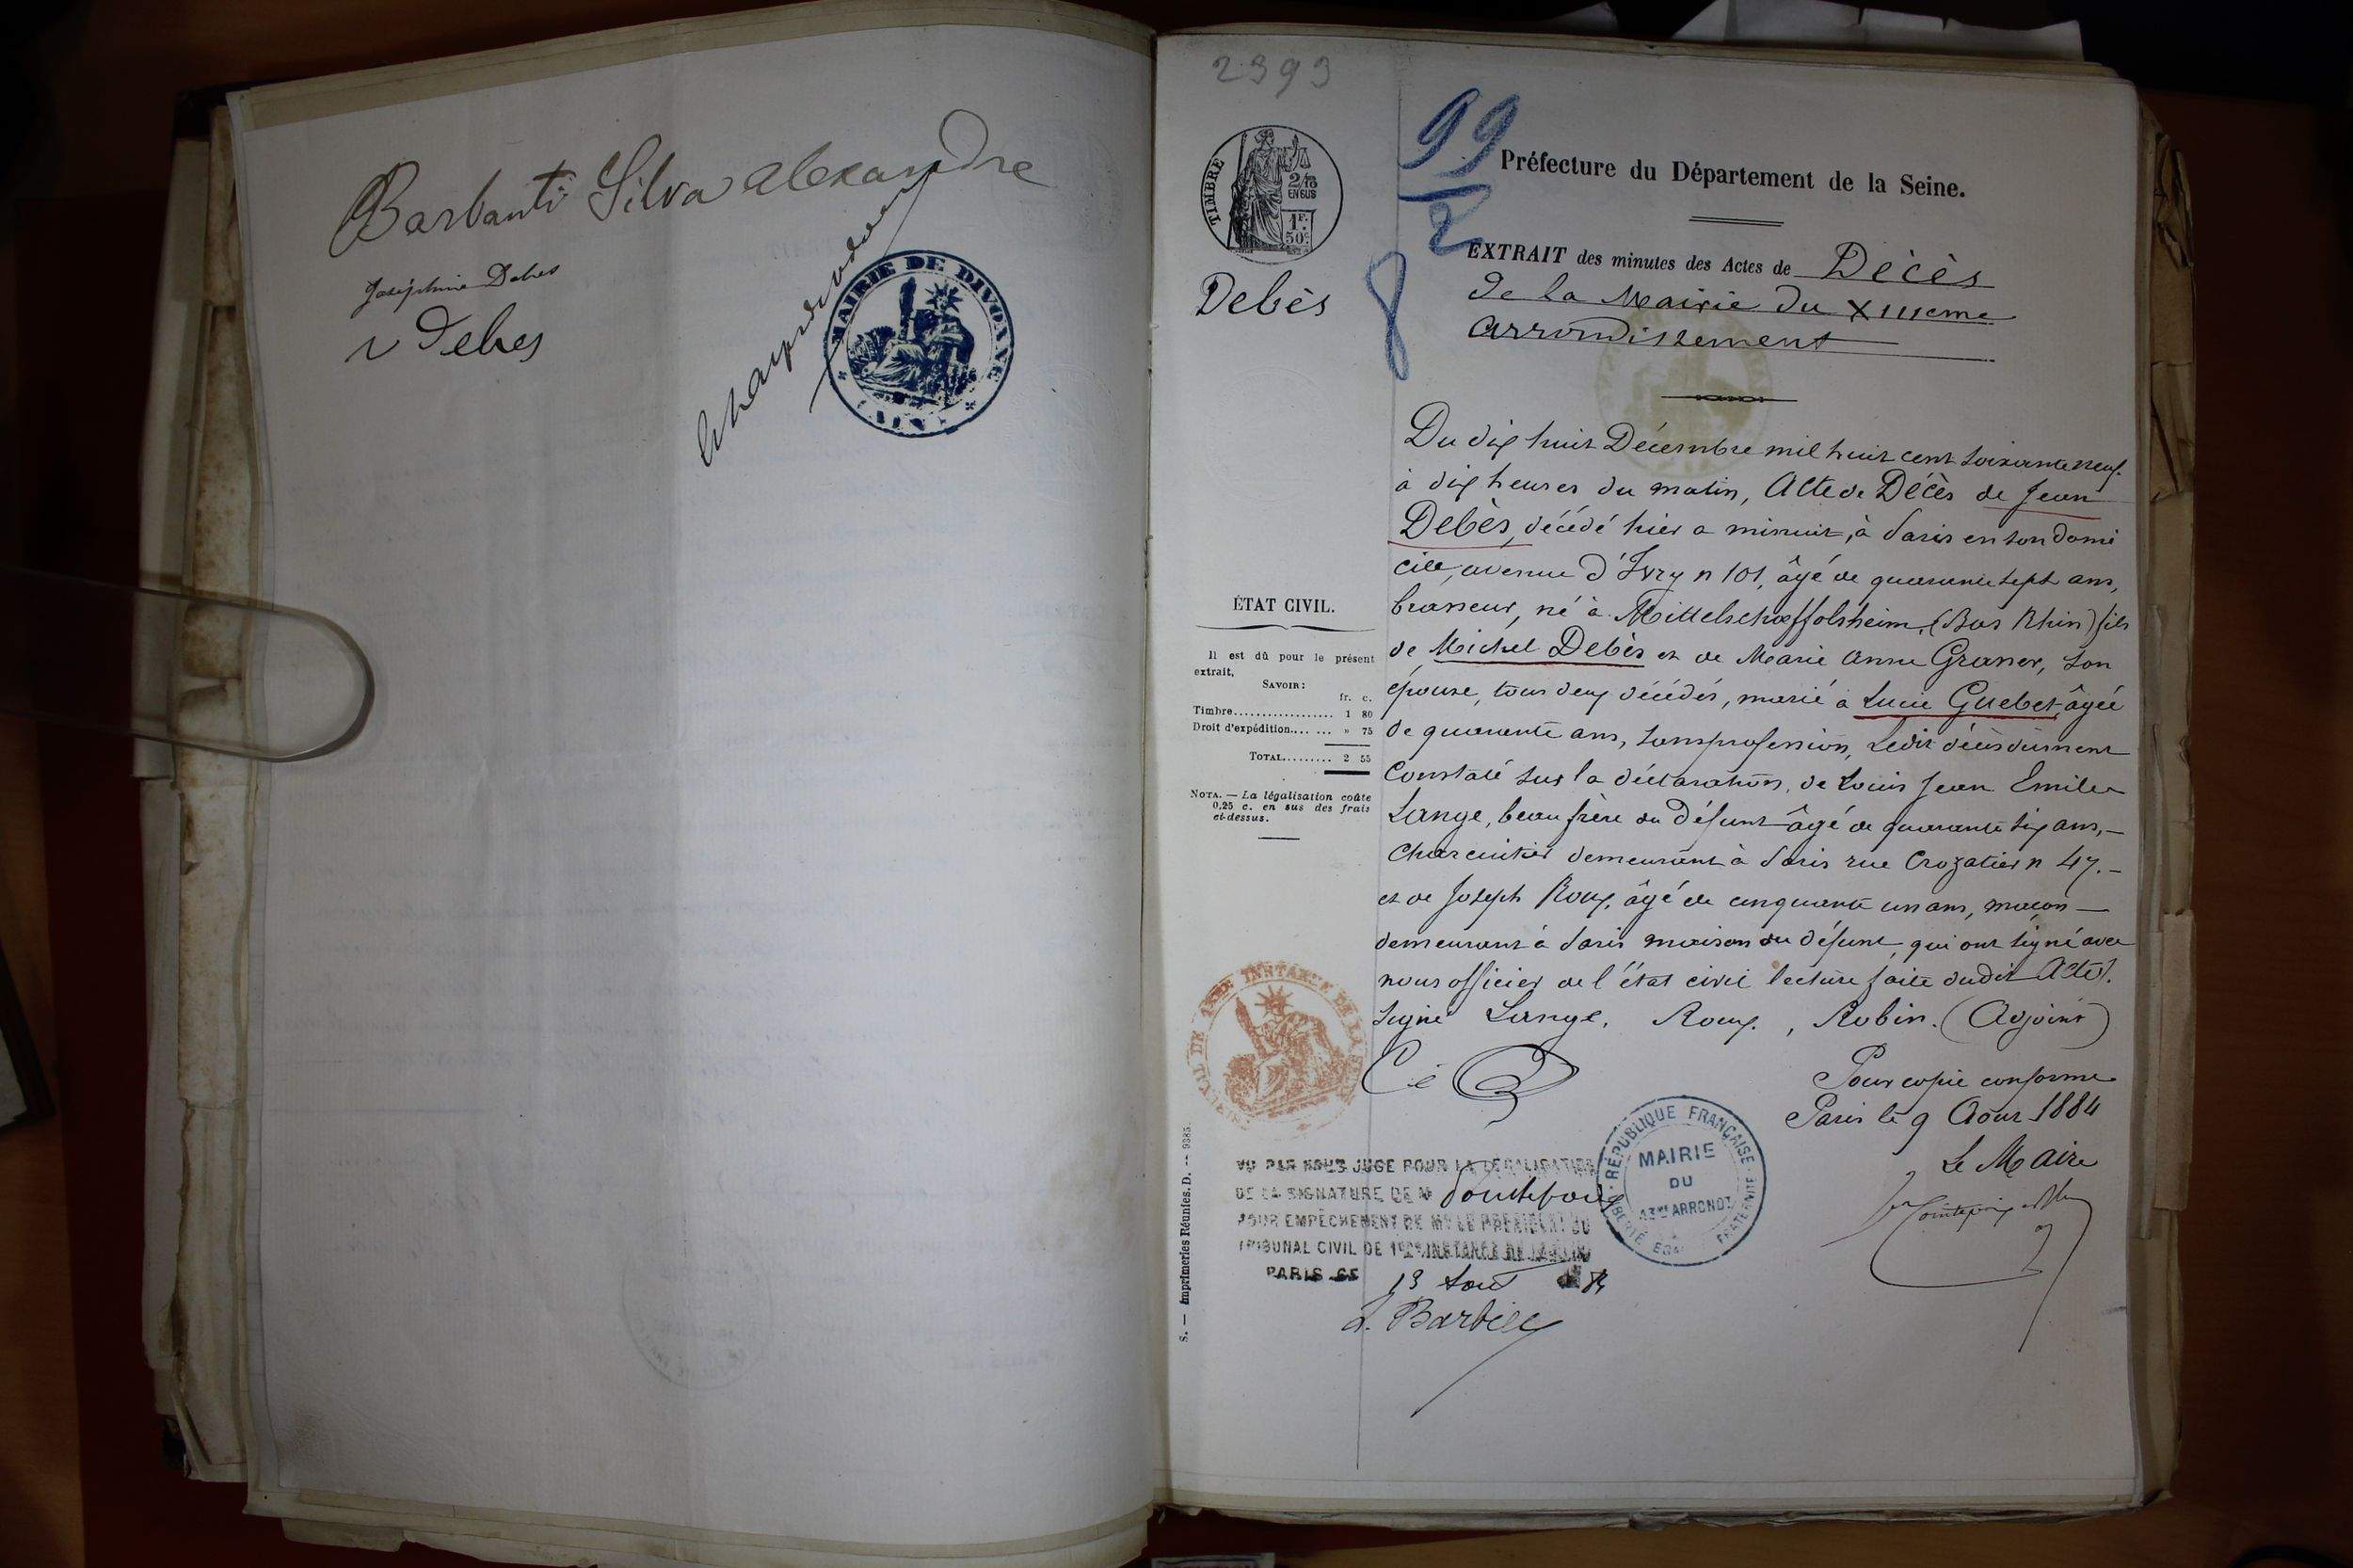 Barbanti Silva Alexandre
Joséphine Debes
v Debes
MAIRIE DE DIVONNE
(AIN)
2393
99
2
8
TIMBRE
2/10
EN SUS
1F.
50c.
Debès
Préfecture du Département de la Seine.
EXTRAIT des minutes des Actes de Décès
de la Mairie du XIIIeme
arrondissement
Du dix huit Décembre mil huit cent soixante neuf.
à dix heures du matin, Acte de Décès de Jean
Debès, décédé hier a minuit, à Paris en son domi
cile, avenue d'Ivry n 101, âgé de quarante sept ans,
brasseur, né à Mittelschœffolsheim, (Bas Rhin) fils
de Michel Debès et de Marie Anne Graner, son
épouse, tous deux décédés, marié à Lucie Guebel âgée
de quarante ans, sans profession, Ledit décès dûment
Constaté sur la déclaration, de Louis Jean Emile
Lange, beau frère du Défunt âgé de quarante six ans,
Charcutier demeurant à Paris rue Crozatier n 47.
et de Joseph Roux, âgé de cinquante un ans, maçon
demeurant à Paris maison du défunt, qui ont signé avec
nous officier de l'état civil lecture faite dudit Acte.
Signé Lange, Roux, Robin. (Adjoint)
Pour copie conforme
Paris le 9 Aout 1884
Le Maire
ÉTAT CIVIL.
Il est dû pour le présent
extrait,
SAVOIR:
fr. c.
Timbre.................. 1 80
Droit d'expédition....... » 75
TOTAL......... 2 55
NOTA. — La légalisation coûte
0,25 c. en sus des frais
ci-dessus.
S. — Imprimeries Réunies. D. — 9385.
RÉPUBLIQUE FRANÇAISE
MAIRIE
DU
13me ARRONDt
LIBERTÉ EGALITÉ FRATERNITÉ
VU PAR NOUS JUGE POUR LA LÉGALISATION
DE LA SIGNATURE DE M
POUR EMPÊCHEMENT DE MR LE PRÉSIDENT DU
TRIBUNAL CIVIL DE 1ère INSTANCE DE LA SEINE
PARIS LE 13 Aout 84